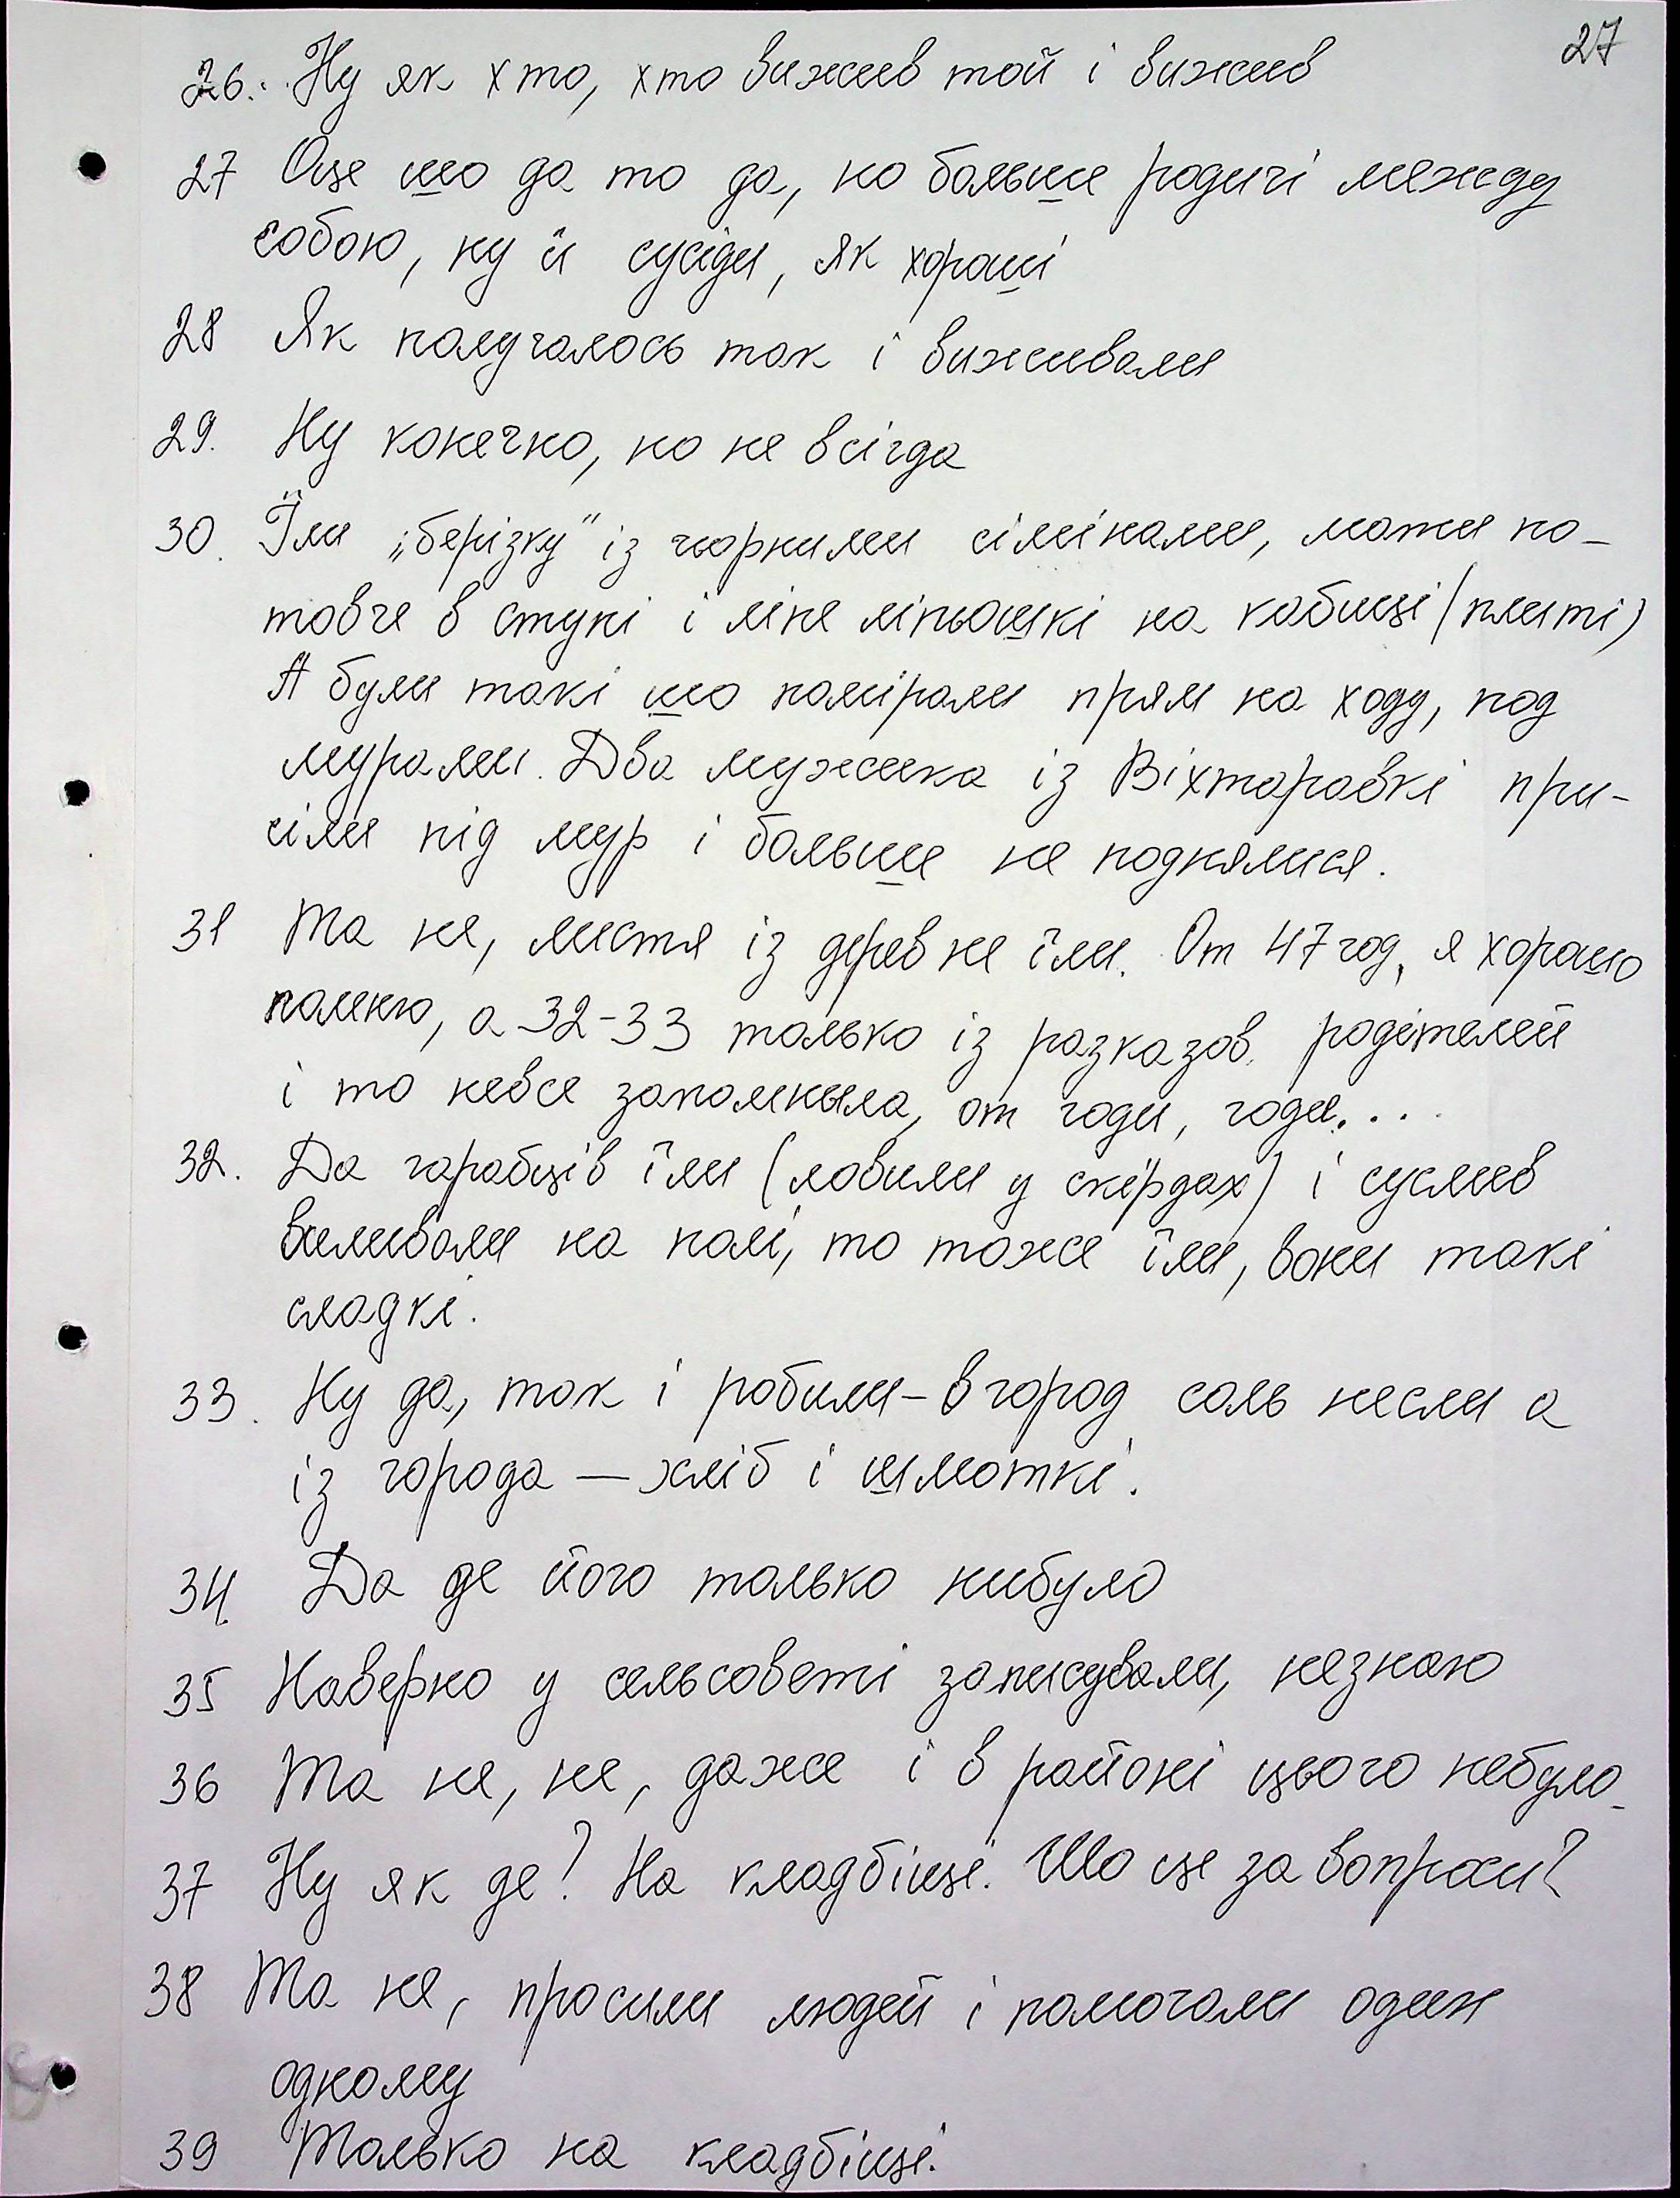 27
26. Ну як хто, хто вижив той і вижив
27 Оце шо да то да, но больше родичі между
собою, ну й сусіди, як хороші
28 Як получалось так і виживали
29. Ну конечно, но не всігда
30. Їли „берізку" із чюрними сімінами, мати по-
товче в ступі і ліпе ліпьошкі на кабиці (плиті)
А були такі шо помірали прям на ходу, под
мурами. Два мужика із Віхторовкі при-
сіли під мур і больше не поднялися.
31 Та не, листя із дерев не їли. От 47 год, я хорошо
помню, а 32-33 только із разказов родітелей
і то невсе запомныла, от годи, годи...
32. Да горобців їли (ловили у скірдах) і суслив
виливали на полі, то тоже їли, вони такі
сладкі.
33. Ну да, так і робили – в город соль несли а
із города — хліб і шмоткі.
34 Да де його только нибуло
35 Наверно у сельсоветі записували, незнаю
36 Та не, не, даже і в районі цього небуло
37 Ну як де? На кладбіщі. Шо це за вопроси?
38 Та не, просили людей і помогали один
одному
39 Только на кладбіщі.